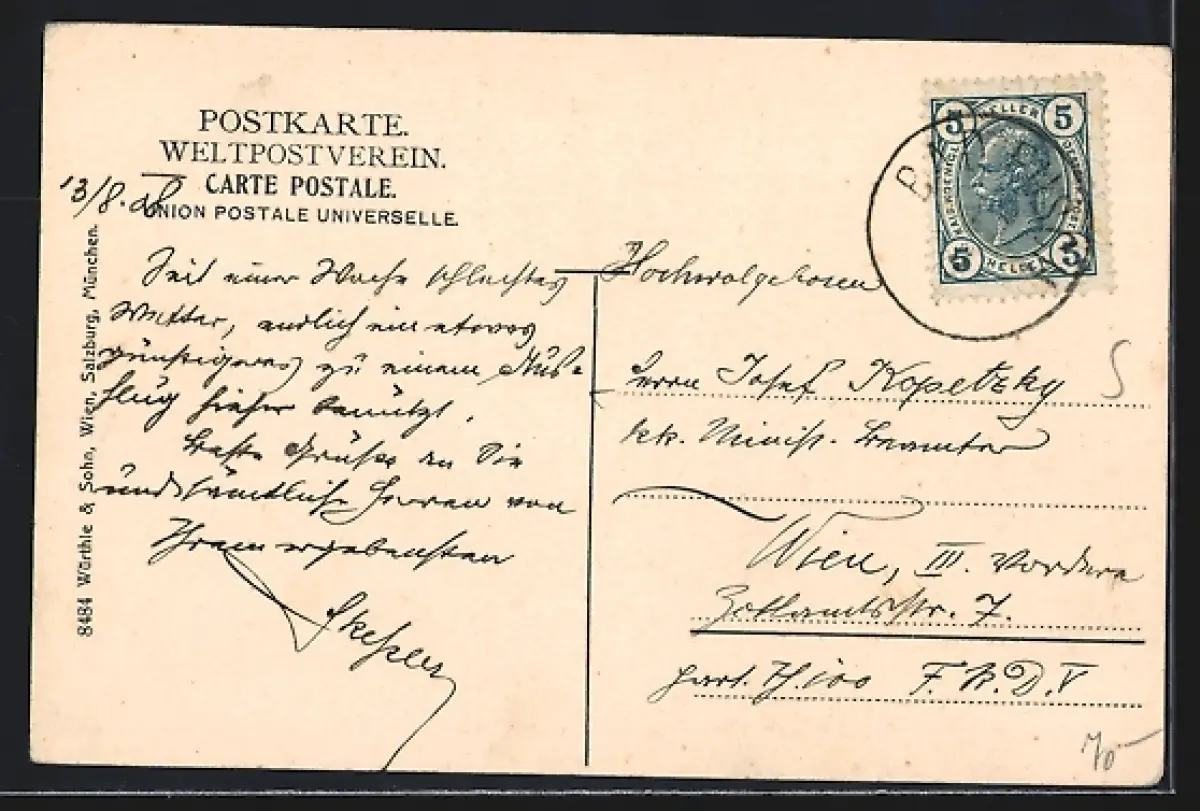 POSTKARTE.
WELTPOSTVEREIN.
CARTE POSTALE.
UNION POSTALE UNIVERSELLE.
13/8.
8484 Würthle & Sohn, Wien, Salzburg, München.
Seit einer Woche schlechtes
Wetter, endlich ein etwas
günstigeres zu einem Aus-
flug hieher benützt.
Beste Grüße an Sie
und sämtliche Herren von
Ihrem ergebensten
5 HELLER 5
5 HELLER 5
Hochwolgeboren
Herrn Josef Kopetzky
kk. Minist. Beamter
Wien, III. Vordere
Zollamtsstr. 7.
F. B. D. V